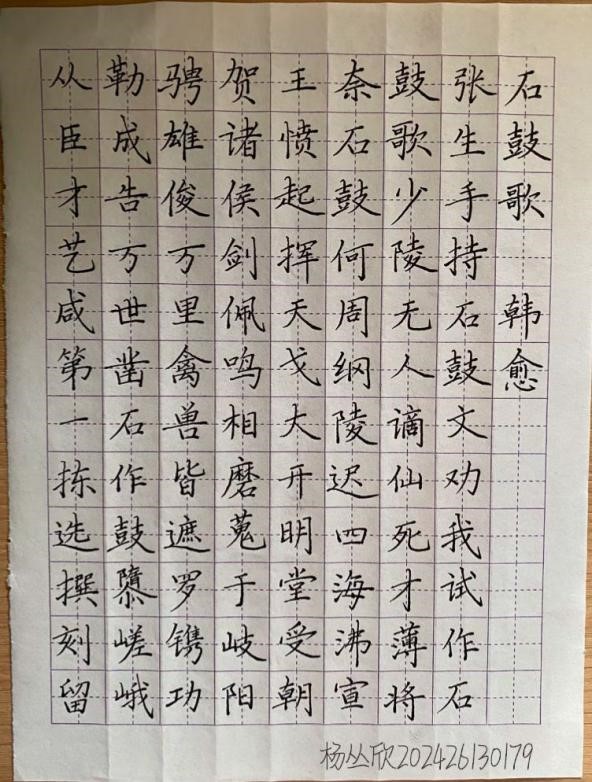 石鼓歌 韩愈
张生手持石鼓文劝我试作石
鼓歌少陵无人谪仙死才薄将
奈石鼓何周纲陵迟四海沸宣
王愤起挥天戈大开明堂受朝
贺诸侯剑佩鸣相磨蒐于岐阳
骋雄俊万里禽兽皆遮罗镌功
勒成告万世凿石作鼓隳嵯峨
从臣才艺咸第一拣选撰刻留
杨丛欣202426130179